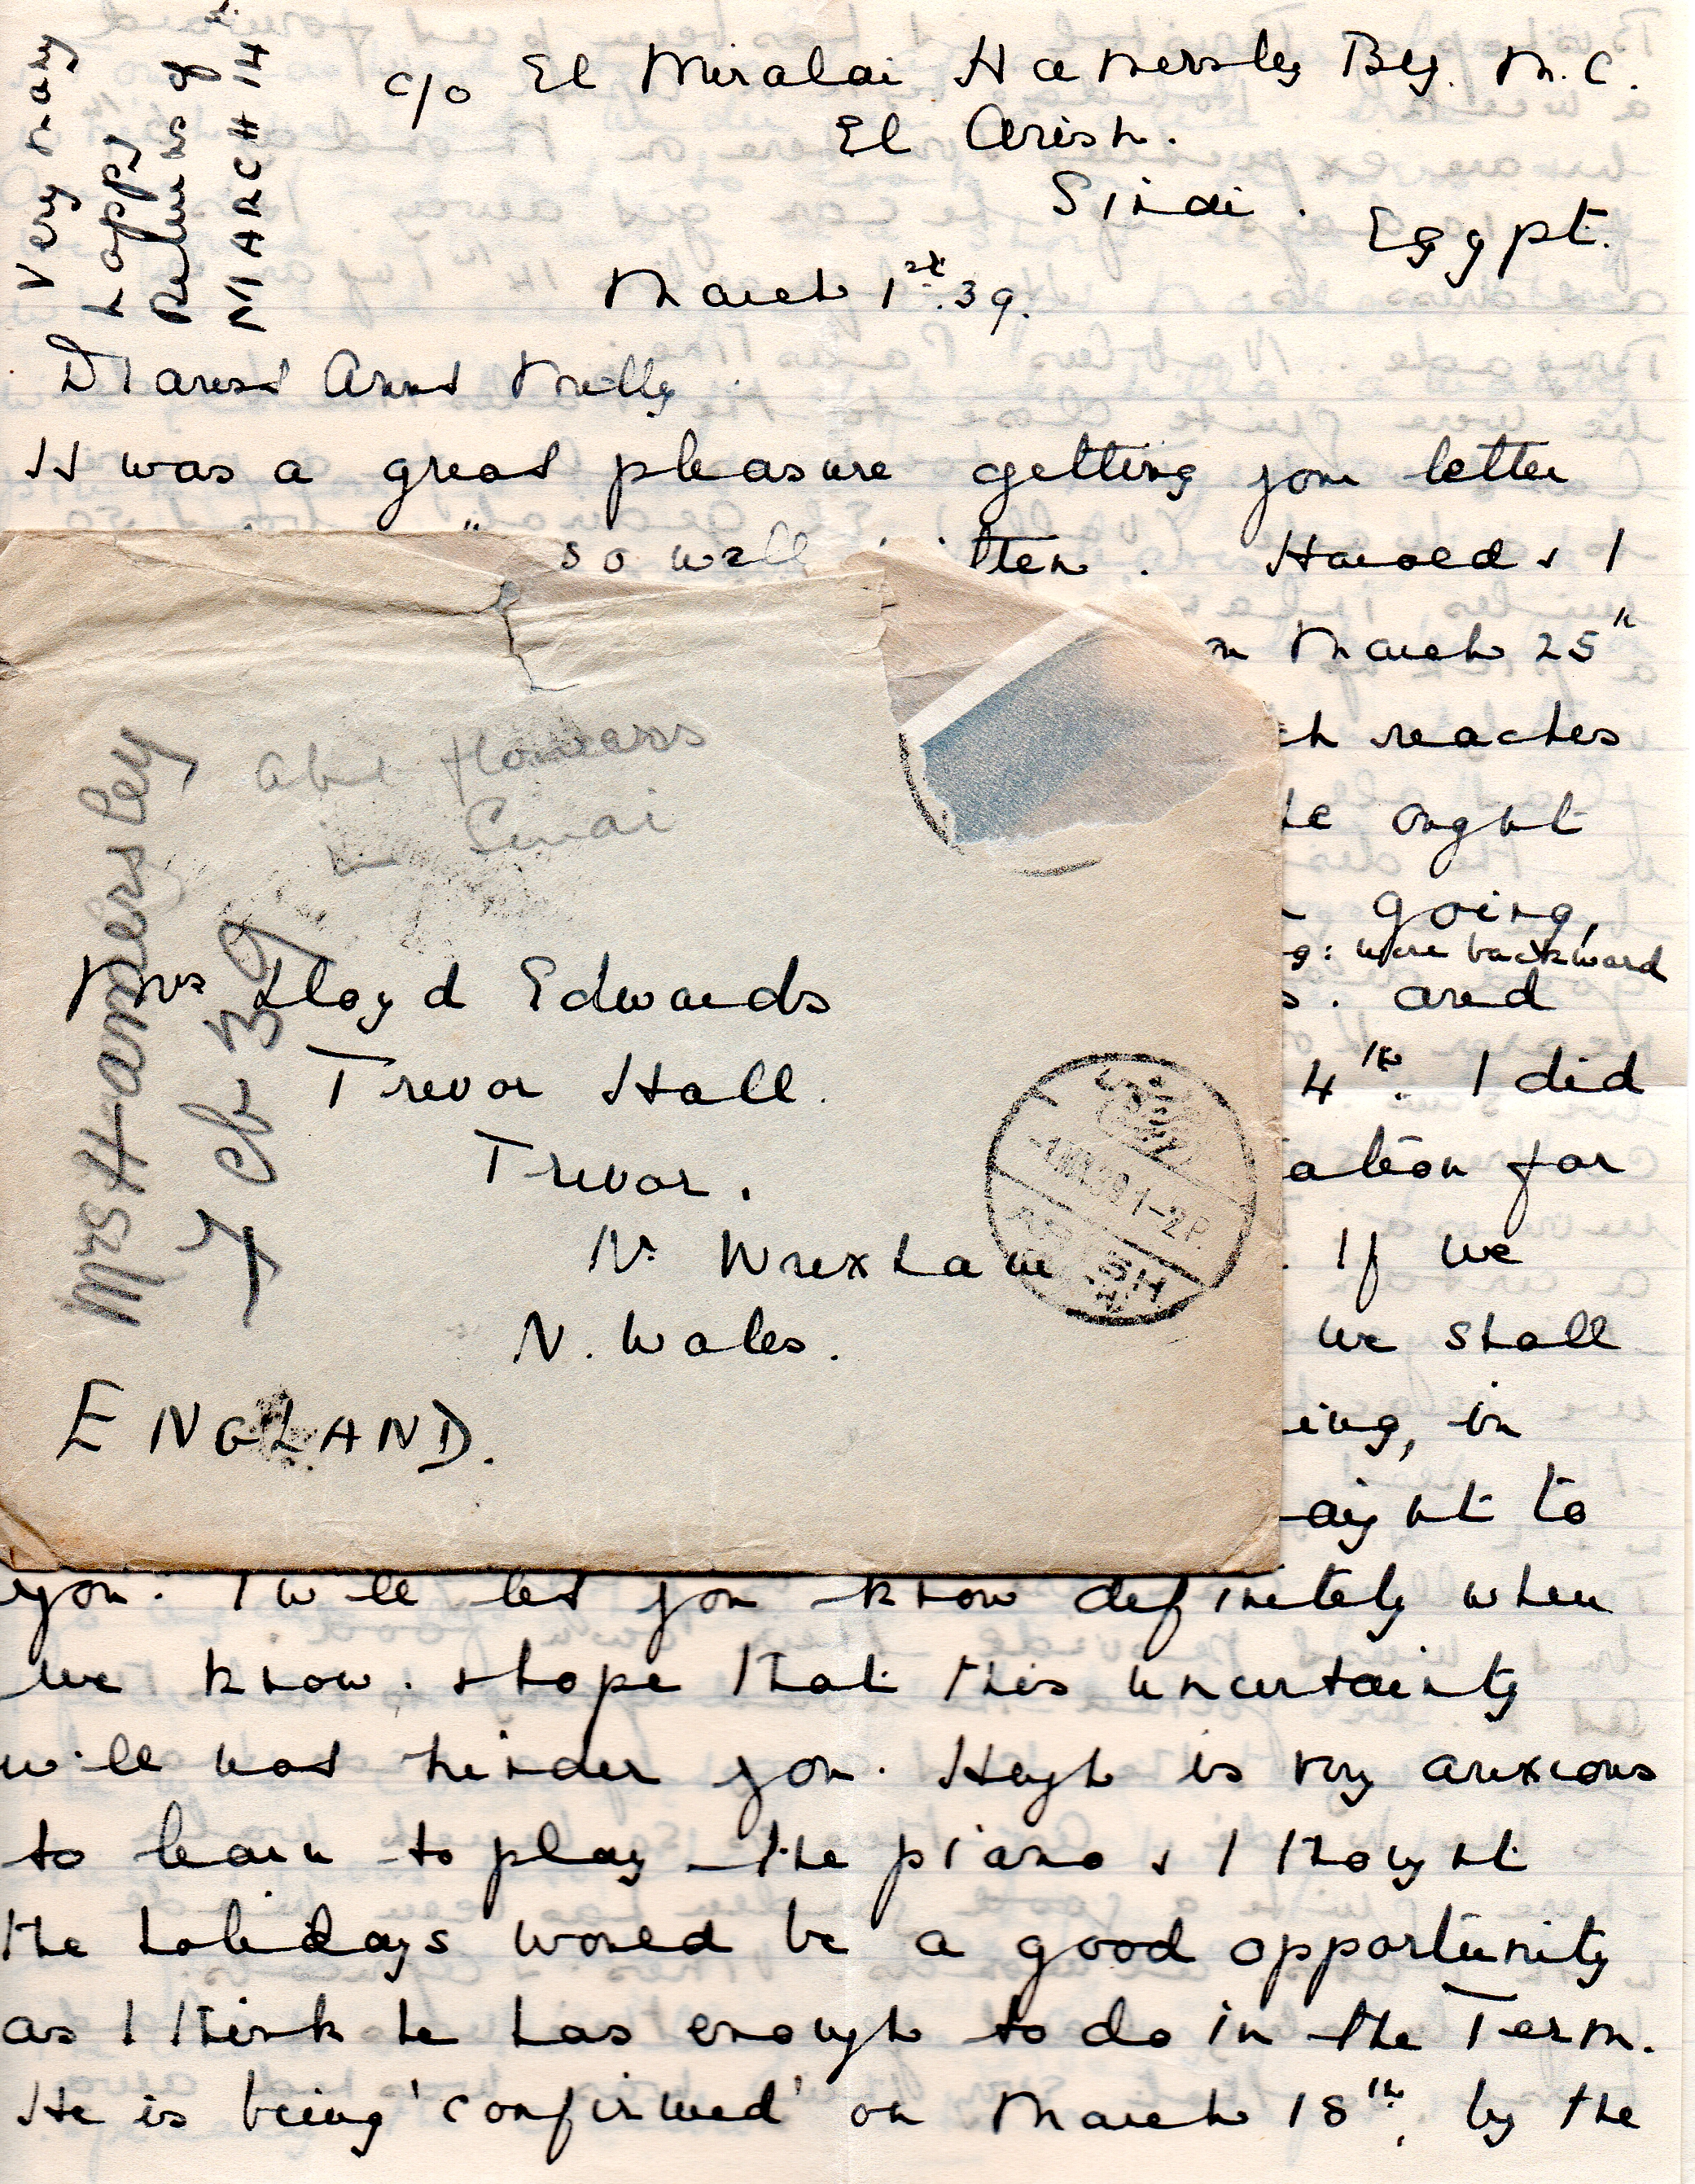 Very many
happy
Returns of
MARCH 14
c/o El Miralai Hamersley Bey. M.C.
El Arish.
Sinai.
Egypt.
March 1st. 39.
Dearest Aunt Milly
It was a great pleasure getting your letter
so well Harold & I
March 25th
reaches
ought
going,
were backward
s. and
4th. I did
ation for
If we
we shall
ing, in
aight to
you. I will let you know definitely when
we know. & hope that this uncertainty
will not hinder you. Hugh is very anxious
to learn to play the piano & I thought
the holidays would be a good opportunity
as I think he has enough to do in the Term.
He is being 'confirmed' on March 18th, by the
Mrs Hamersley
Feb 39
Sinai
Mrs Lloyd Edwards
Trevor Hall.
Trevor.
Nr Wrexham
N. Wales.
ENGLAND.
1-2P.